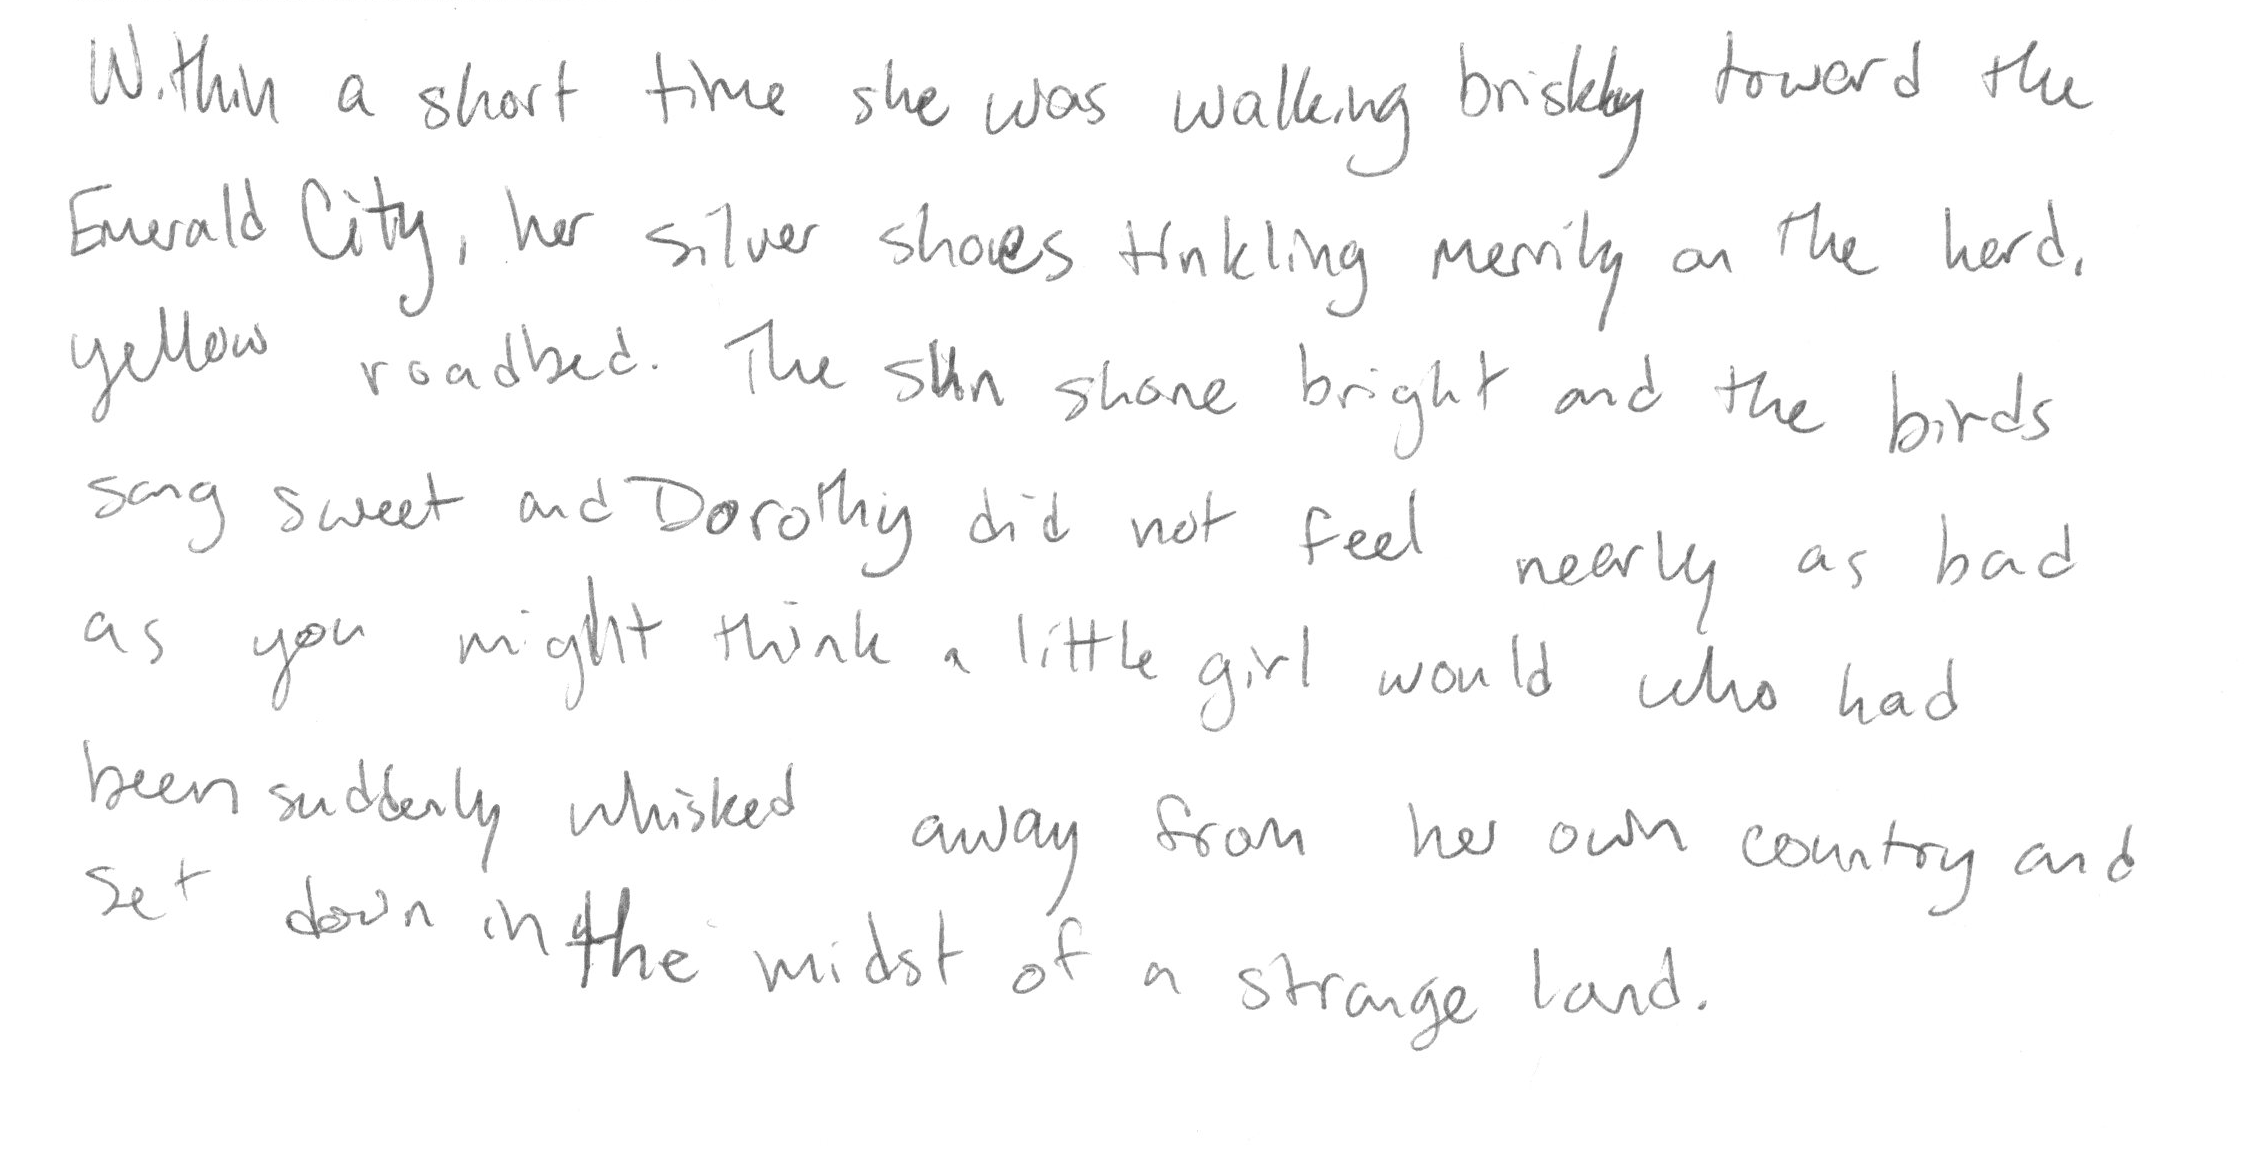 Within a short time she was walking briskly toward the
Emerald City, her silver shoes tinkling merrily on the hard,
yellow roadbed. The sun shone bright and the birds
sang sweet and Dorothy did not feel nearly as bad
as you might think a little girl would who had
been suddenly whisked away from her own country and
set down in the midst of a strange land.